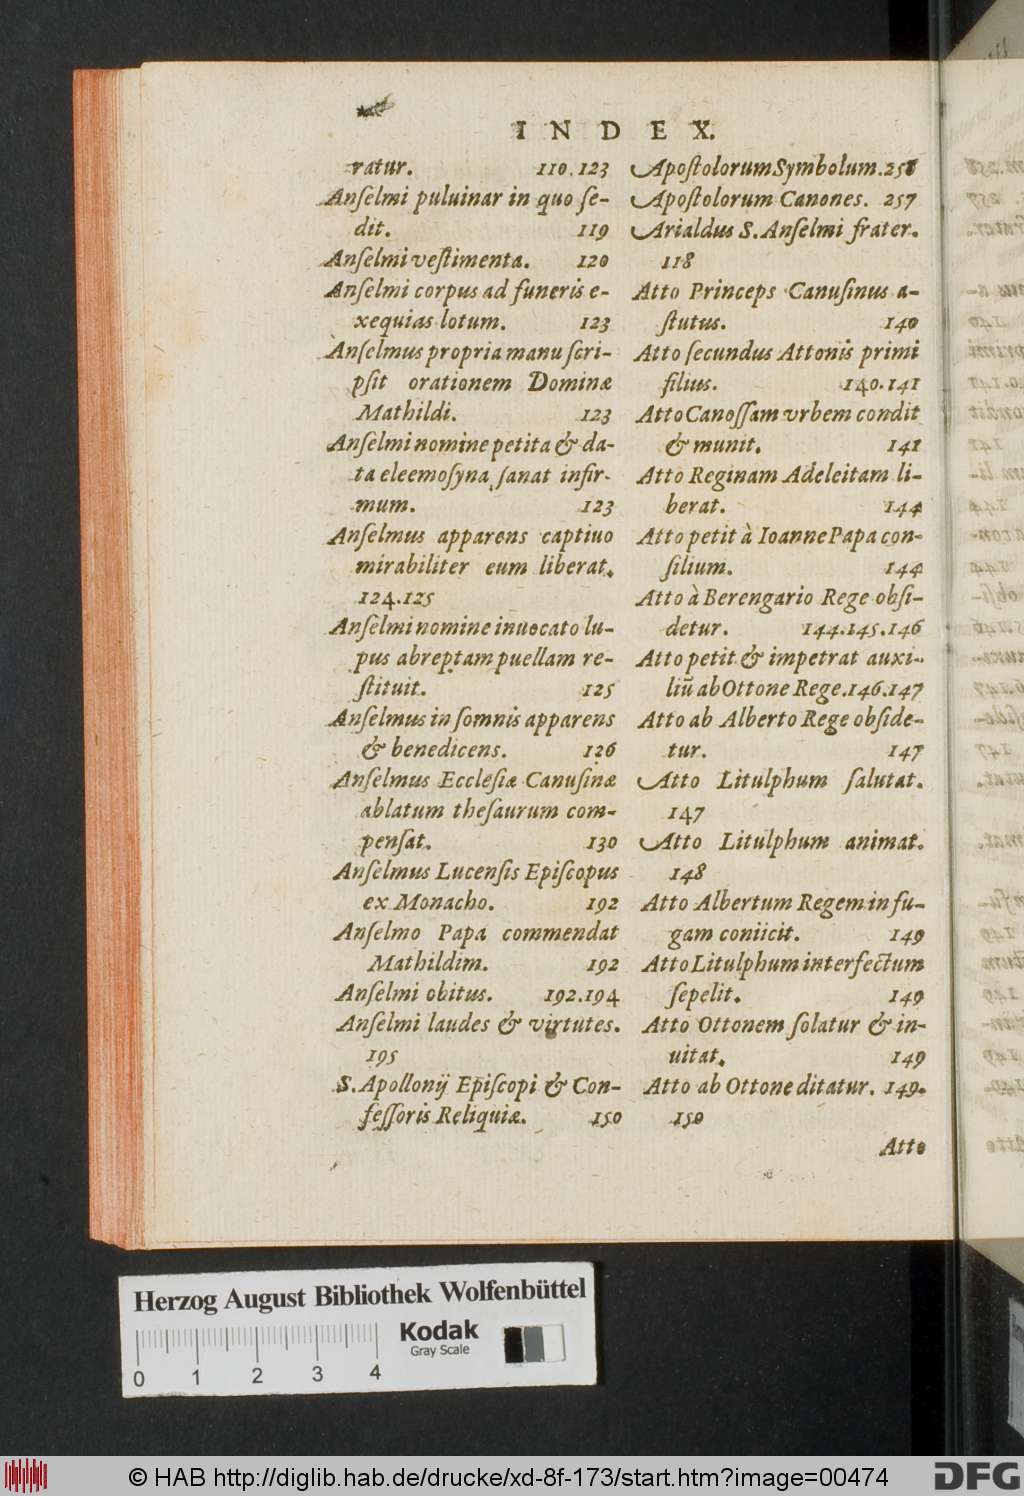 INDEX.
ratur. 110.123
Anſelmi puluinar in quo ſe-
dit. 119
Anſelmi veſtimenta. 120
Anſelmi corpus ad funeris e-
xequias lotum. 123
Anſelmus propria manu ſcri-
pſit orationem Dominæ
Mathildi. 123
Anſelmi nomine petita & da-
ta eleemoſyna, ſanat infir-
mum. 123
Anſelmus apparens captiuo
mirabiliter eum liberat.
124.125
Anſelmi nomine inuocato lu-
pus abreptam puellam re-
ſtituit. 125
Anſelmus in ſomnis apparens
& benedicens. 126
Anſelmus Eccleſiæ Canuſinæ
ablatum theſaurum com-
penſat. 130
Anſelmus Lucenſis Epiſcopus
ex Monacho. 192
Anſelmo Papa commendat
Mathildim. 192
Anſelmi obitus. 192.194
Anſelmi laudes & virtutes.
195
S. Apollonij Epiſcopi & Con-
feſſoris Reliquiæ. 150
Apoſtolorum Symbolum. 256
Apoſtolorum Canones. 257
Arialdus S. Anſelmi frater.
118
Atto Princeps Canuſinus a-
ſtutus. 140
Atto ſecundus Attonis primi
filius. 140.141
Atto Canoſſam vrbem condit
& munit. 141
Atto Reginam Adeleitam li-
berat. 144
Atto petit à Ioanne Papa con-
ſilium. 144
Atto à Berengario Rege obſi-
detur. 144.145.146
Atto petit & impetrat auxi-
liũ ab Ottone Rege. 146.147
Atto ab Alberto Rege obſide-
tur. 147
Atto Litulphum ſalutat.
147
Atto Litulphum animat.
148
Atto Albertum Regem in fu-
gam coniicit. 149
Atto Litulphum interfectum
ſepelit. 149
Atto Ottonem ſolatur & in-
uitat. 149
Atto ab Ottone ditatur. 149.
150
Atto
Herzog August Bibliothek Wolfenbüttel
Kodak
Gray Scale
0 1 2 3 4
© HAB http://diglib.hab.de/drucke/xd-8f-173/start.htm?image=00474
DFG